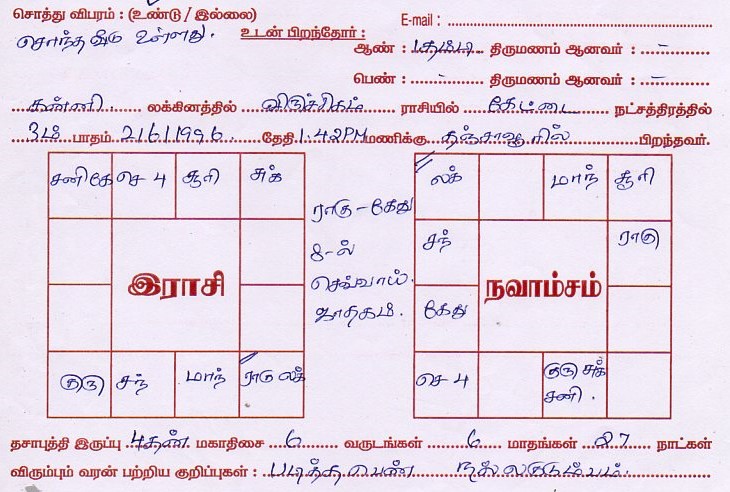 சொத்து விபரம் : (உண்டு / இல்லை) E-mail :
சொந்த வீடு உள்ளது. உடன் பிறந்தோர் : ஆண் : 1தம்பி திருமணம் ஆனவர் : -
பெண் : - திருமணம் ஆனவர் : -
கன்னி லக்கினத்தில் விருச்சிகம் ராசியில் கேட்டை நட்சத்திரத்தில்
3ம் பாதம் 2/6/1996 தேதி 1:42PM மணிக்கு தஞ்சாவூரில் பிறந்தவர்.
சனி கே செ 4 சூரி சுக்
ராகு - கேது
8-ல்
செவ்வாய்
ஜாதகம்.
இராசி
குரு சந் மாந் ராகு லக்
லக் மாந் சூரி
சந் ராகு
நவாம்சம்
கேது
செ 4 குரு சுக்
சனி.
தசாபுத்தி இருப்பு 4தன் மகாதிசை 6 வருடங்கள் 6 மாதங்கள் 27 நாட்கள்
விரும்பும் வரன் பற்றிய குறிப்புகள் : படித்த பெண் நல்ல குடும்பம்.